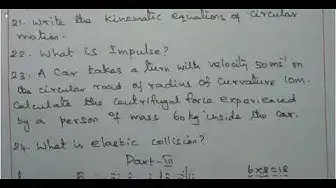 21. Write the kinematic equation of circular
motion.
22. What is Impulse?
23. A Car takes a turn with velocity 50ms⁻¹ on
the circular road of radius of curvature 10m.
Calculate the centrifugal force experienced
by a person of mass 60kg inside the car.
24. What is elastic collision?
Part-III
6x3=18